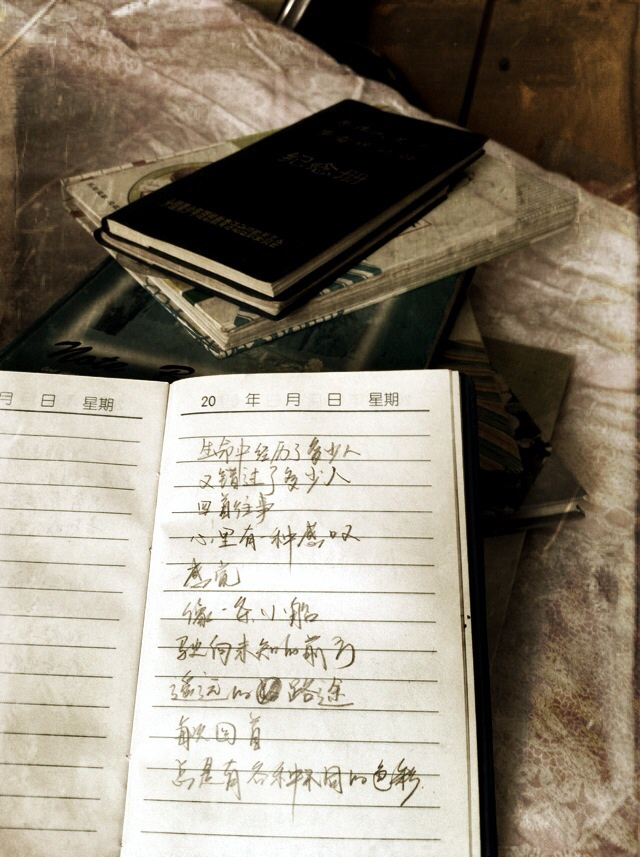 纪念册
月 日 星期
20 年 月 日 星期
生命中经历了多少人
又错过了多少人
回首往事
心里有一种感叹
感觉
像一条小船
驶向未知的前方
遥远的 路途
每次回首
总是有各种不同的色彩